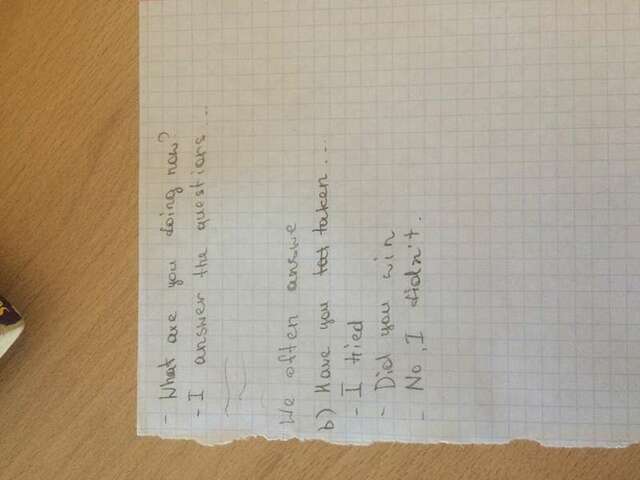 - What are you doing now?
- I answer the questions...
We often answe
b) Have you taken...
- I tried
- Did you win
- No, I didn't.